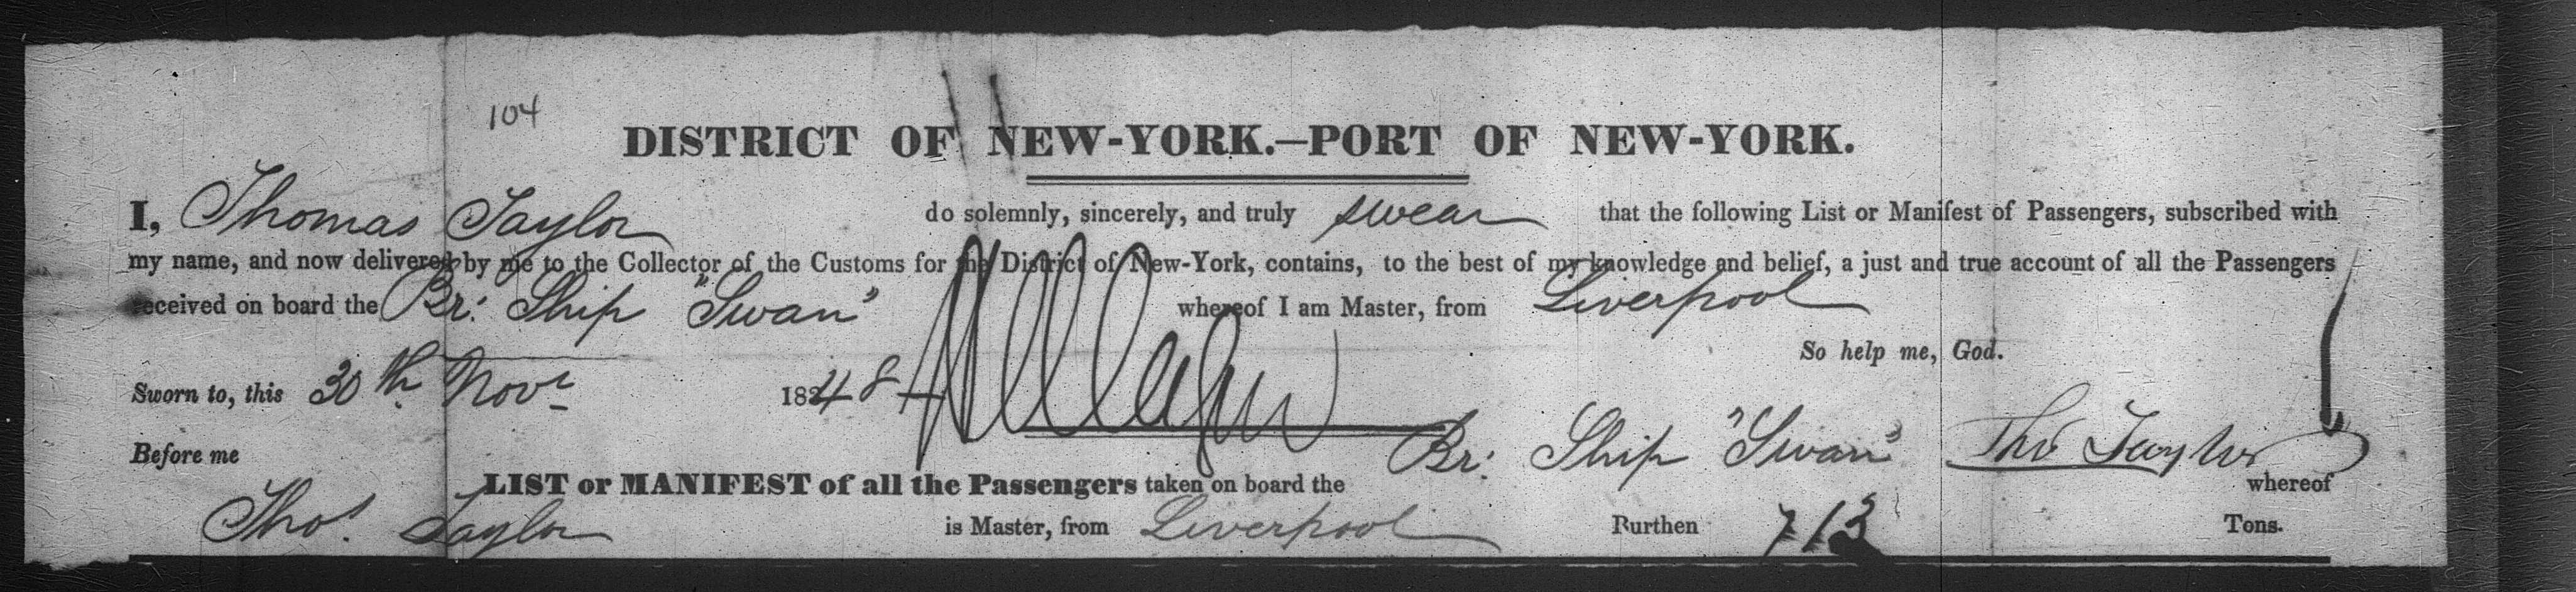 104
DISTRICT OF NEW-YORK.—PORT OF NEW-YORK.
I, Thomas Taylor do solemnly, sincerely, and truly swear that the following List or Manifest of Passengers, subscribed with
my name, and now delivered by me to the Collector of the Customs for the District of New-York, contains, to the best of my knowledge and belief, a just and true account of all the Passengers
received on board the Br: Ship "Swan" whereof I am Master, from Liverpool
So help me, God.
Sworn to, this 30th Novr 1848
Before me
Tho Taylor
LIST or MANIFEST of all the Passengers taken on board the Br: Ship "Swan" whereof
Thos Taylor is Master, from Liverpool Burthen 713 Tons.